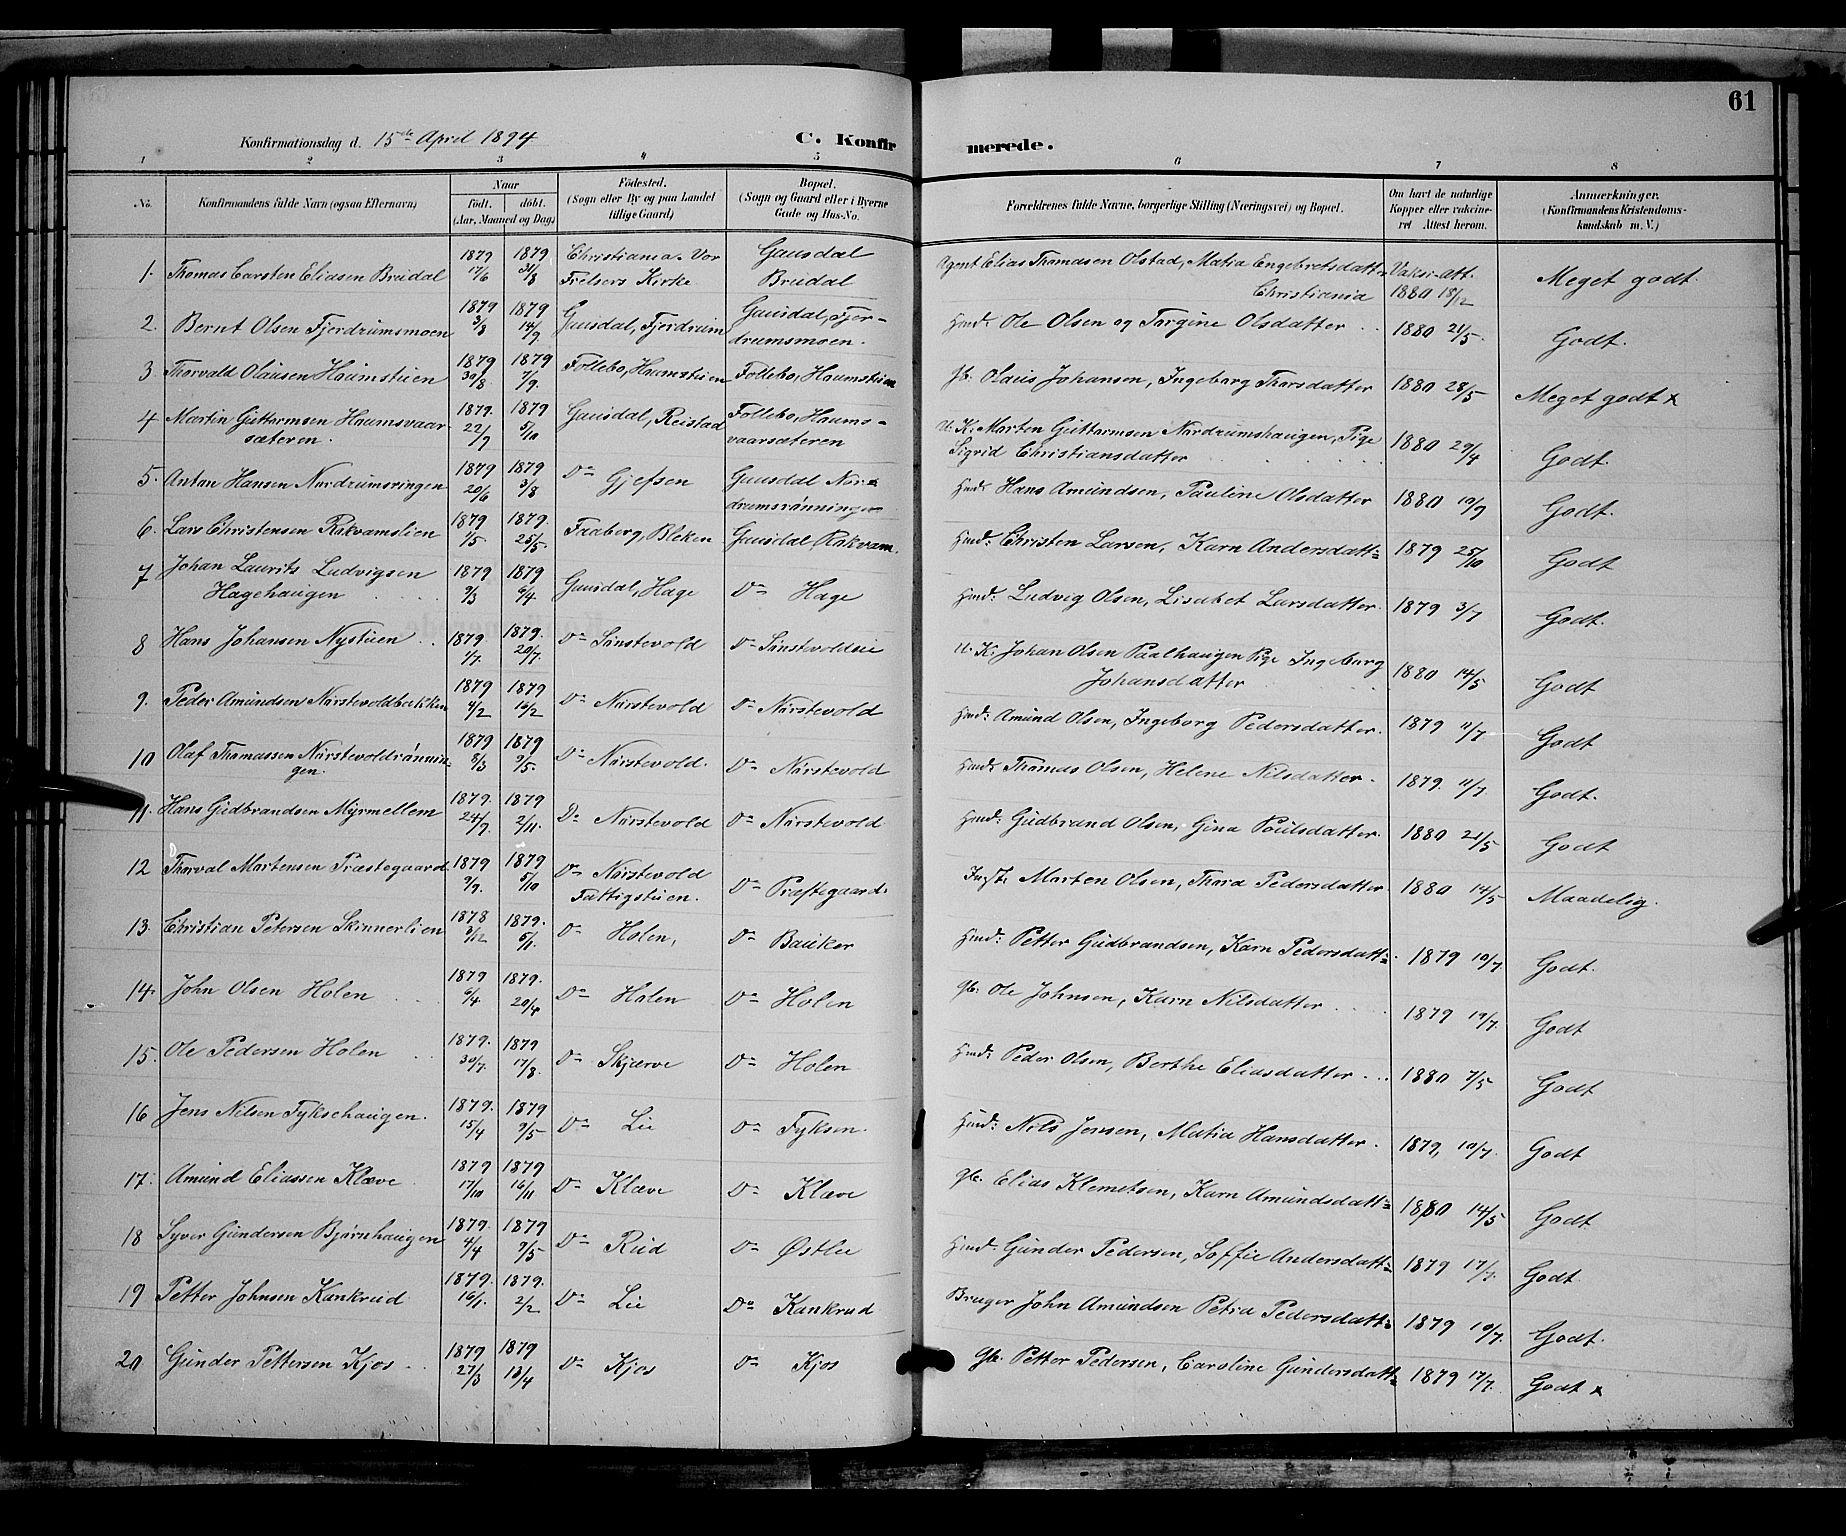 61
Konfirmationsdag d. 15de April 1894
C. Konfirmerede.
1 2 3 4 5 6 7 8
No. | Konfirmandens fulde Navn (ogsaa Efternavn) | Naar født. døbt. (Aar, Maaned og Dag) | Fødested. (Sogn eller By og paa Landet tillige Gaard) | Bopæl. (Sogn og Gaard eller i Byerne Gade og Hus-No. | Forældrenes fulde Navne, borgerlige Stilling (Næringsvei) og Bopæl. | Om havt de naturlige Kopper eller vakcineret. Attest herom. | Anmærkninger. (Konfirmandens Kristendomskundskab m. V.)
1. Thomas Carsten Eliasen Bredal | 1879 17/6 | 1879 31/8 | Christiania. Vor Frelsers Kirke | Gausdal Bredal | Agent Elias Thomasen Olstad, Matia Engebretsdatter Christiania | Vaksi-att. 1880 18/12 | Meget godt.
2. Bernt Olsen Fjordrumsmoen | 1879 3/8 | 1879 14/9 | Gausdal, Fjerdrum | Gausdal, Fjerdrumsmoen. | Hmd: Ole Olsen og Torgine Olsdatter | 1880 21/5 | Godt.
3. Thorvald Olausen Haumstuen | 1879 30/8 | 1879 7/9 | Follebo, Haumstuen | Follebo, Haumstuen | Gb. Olaus Johansen, Ingeborg Thorsdatter | 1880 28/5 | Meget godt x
4 Martin Guttormsen Haumsvaarsæteren. | 1879. 22/9 | 1879 5/10 | Gausdal, Reistad | Follebo, Haumsvaarsæteren | U. K. Morten Guttormsen Nordrumshaugen, Pige Sigrid Christiansdatter | 1880 29/4 | Godt.
5. Anton Hansen Nordrumsringen | 1879 20/6 | 1879 3/8 | Do Gjefsen | Gausdal Nordrumsrønningen | Hmd: Hans Amundsen, Pauline Olsdatter | 1880 19/9 | Godt.
6. Lars Christensen Rakvamslien | 1879 1/5 | 1879. 25/5 | Faaberg, Bleken | Gausdal, Rakvam. | Hmd: Christen Larsen, Karn Andersdatt= | 1879 25/10 | Godt
7 Johan Laurits Ludvigsen Hagehaugen | 1879 9/3 | 1879 6/4 | Gausdal, Hage | Do Hage | Hmd: Ludvig Olsen, Lisabet Larsdatter. | 1879 3/7 | Godt.
8 Hans Johansen Nystuen | 1879. 1/7. | 1879. 20/7. | Do Sønstevold | Do Sønstevoldeie | U. K. Johan Olsen Paalhaugen Pige Ingeborg Johansdatter | 1880 14/5 | Godt
9. Peder Amundsen Nørstevoldbækken | 1879 4/2 | 1879 16/2 | Do Nørstevold | Do Nørstevold | Hmd: Amund Olsen, Ingeborg Pedersdatter. | 1879 11/7 | Godt
10 Olaf Thomassen Nørstevoldrønningen. | 1879 8/3 | 1879 9/5. | Do Nørstevold. | Do Nørstevold | Hmd: Thomas Olsen, Helene Nilsdatter. | 1879. 11/7 | Godt.
11. Hans Gudbrandsen Myrmellem | 1879. 24/9 | 1879 2/11. | Do Nørstevold | Do Nørstevold | Hmd: Gudbrand Olsen, Gina Poulsdatter. | 1880 21/5 | Godt
12 Thorval Martensen Præstegaard | 1879 9/9. | 1879 5/10 | Do Nørstevold Fattigstuen. | Do Præstegaard. | Inst. Morten Olsen, Thora Pedersdatter | 1880 14/5 | Maadelig.
13. Christian Petersen Skinnerlien | 1878 3/12 | 1879. 5/1. | Do Holen, | Do Bauker | Hmd: Petter Gudbrandsen, Karn Pedersdatt= | 1879 10/7. | Godt.
14. John Olsen Holen | 1879 6/4 | 1879. 20/4 | Do Holen | Do Holen | Gb. Ole Johnsen, Karn Nilsdatter | 1879 19/7. | Godt
15. Ole Pedersen Holen | 1879. 30/7. | 1879 17/8. | Do Skjærve | Do Holen | Hmd: Peder Olsen, Berthe Eliasdatter | 1880 7/5 | Godt
16 Jens Nilsen Fyksehaugen. | 1879. 15/4 | 1879 9/5 | Do Lie | Do Fyksen. | Hmd: Nils Jensen, Matia Hansdatter. | 1879, 10/7. | Godt
17. Amund Eliassen Klæve | 1879 17/10 | 1879 16/11 | Do Klæve | Do Klæve | Gb. Elias Klemetsen, Karn Amundsdatt= | 1880 14/5 | Godt
18 Syver Gundersen Bjørnhaugen | 1879. 4/4 | 1879 9/5 | Do Rud | Do Østlie | Hmd. Gunder Pedersen, Soffie Andersdatt= | 1879 17/7. | Godt
19 Petter Johnsen Kankrud | 1879. 16/1. | 1879. 2/2 | Do Lie | Do Kankrud | Bruger John Amundsen Petra Pedersdatt= | 1879 10/7. | Godt.
20 Gunder Pettersen Kjos | 1879 27/3 | 1879 13/4 | Do Kjos | Do Kjos | Gb. Petter Pedersen, Caroline Gundersdatt= | 1879 17/7. | Godt x